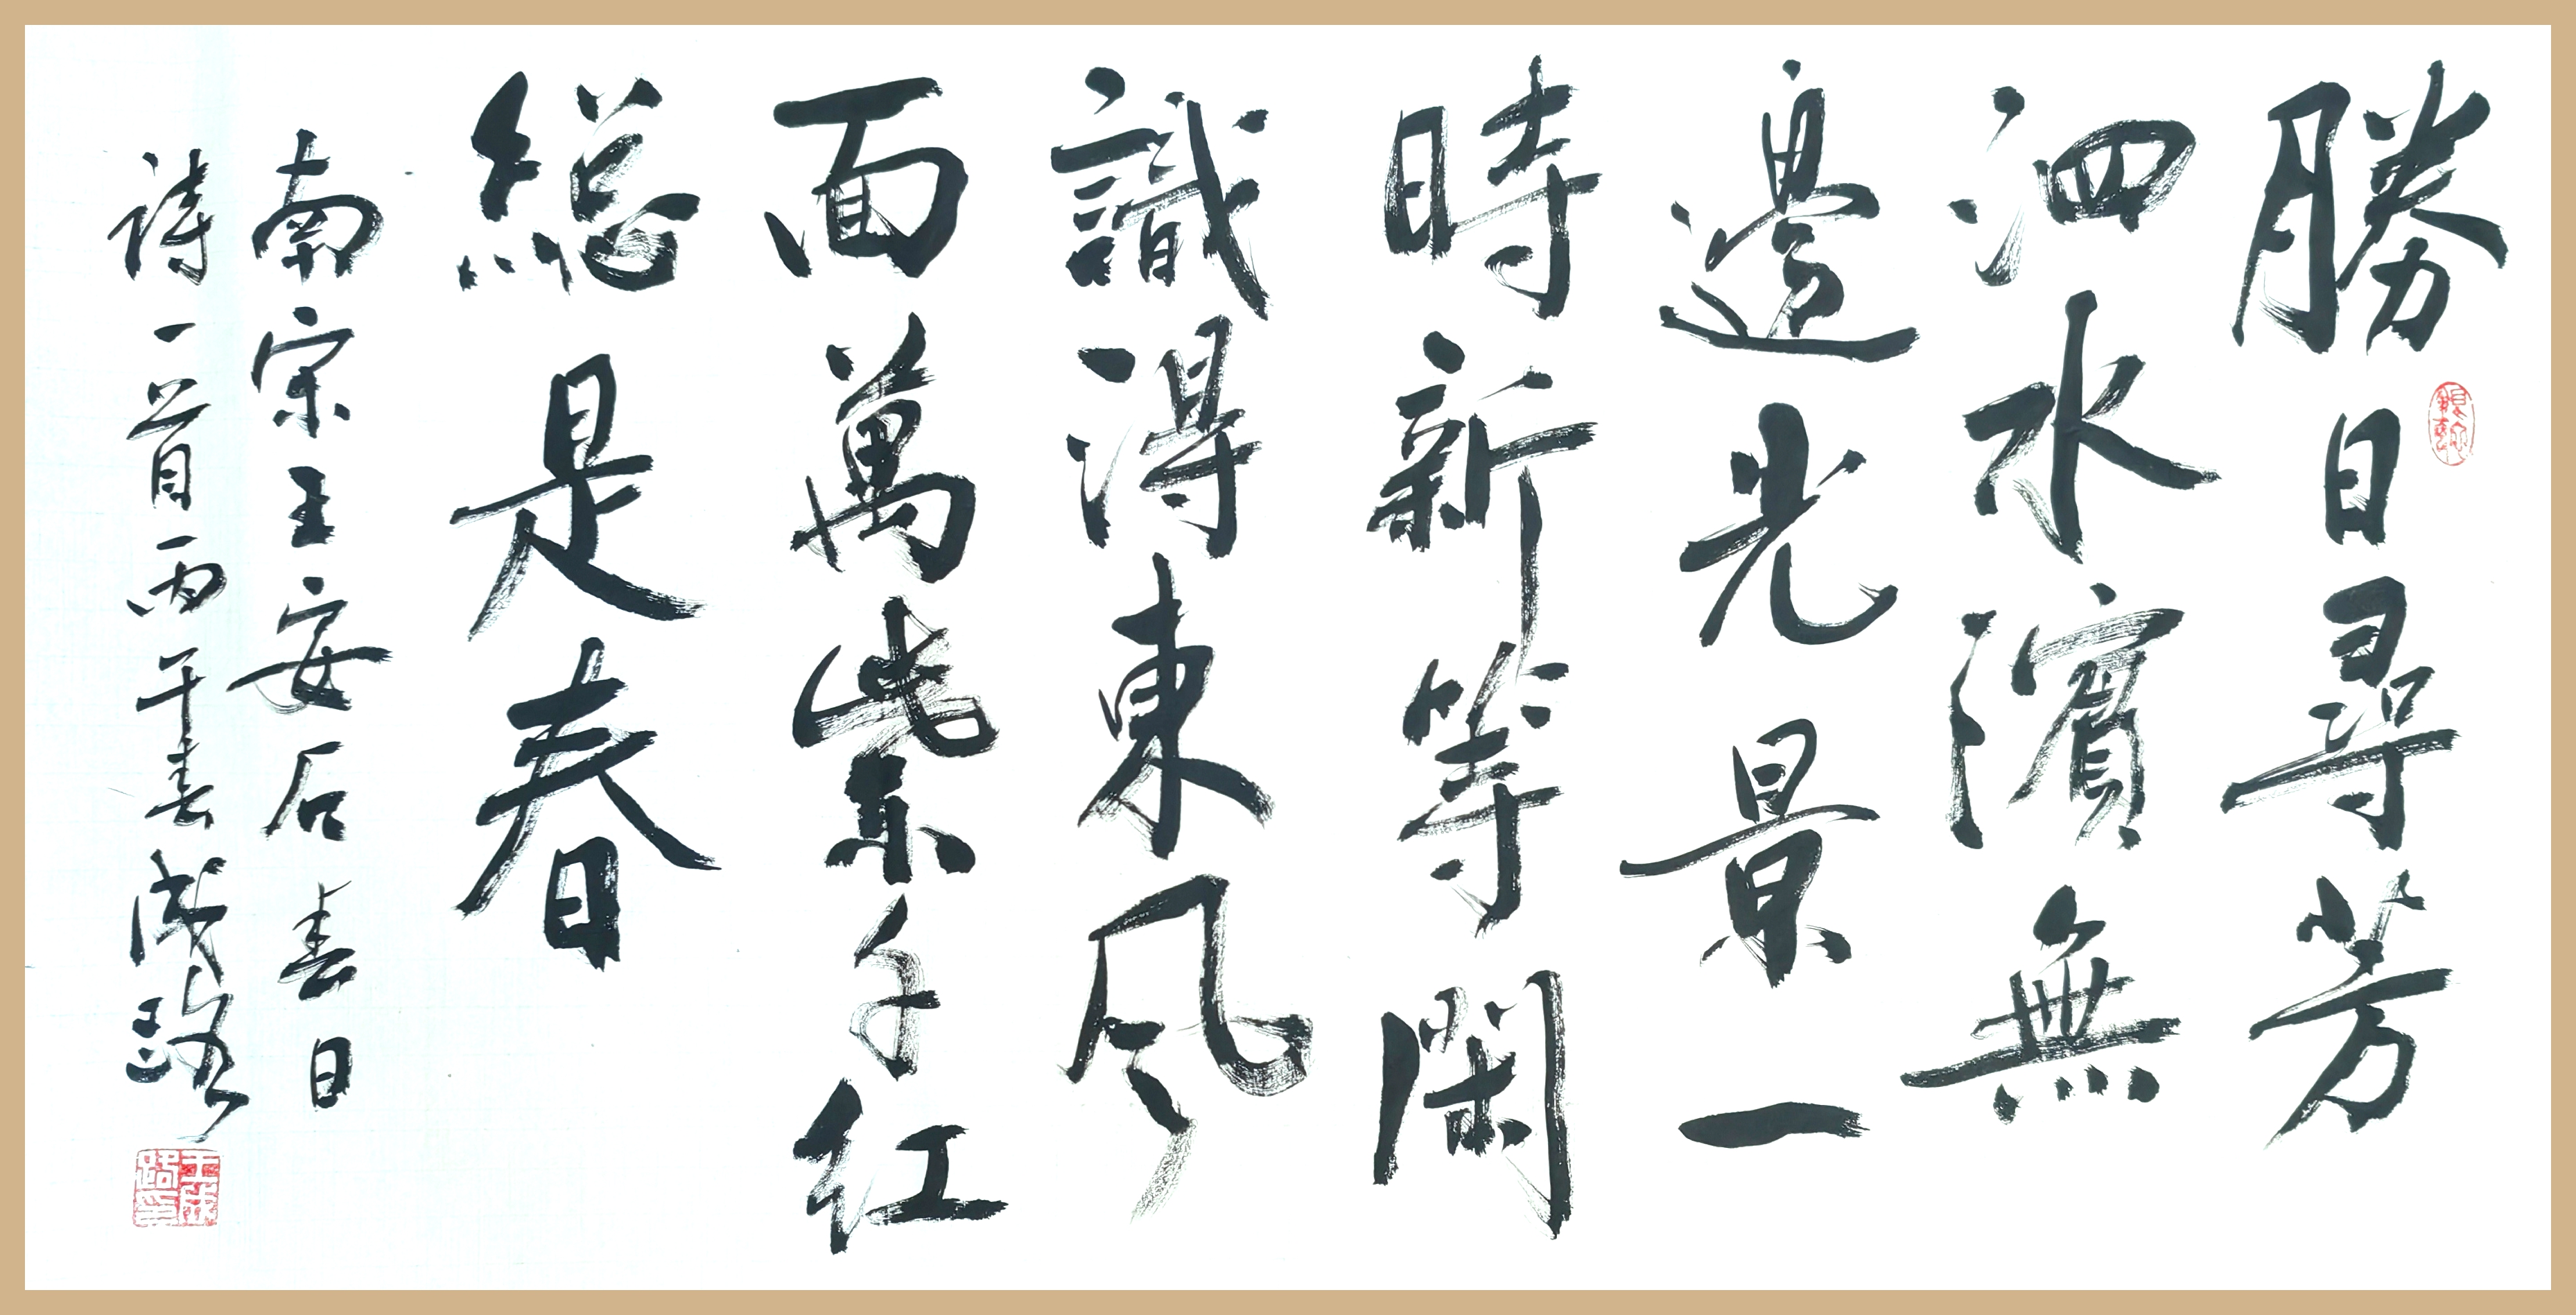 勝日尋芳
泗水濱無
邊光景一
時新等閑
識得東风
面萬紫千红
総是春
南宋王安石春日
詩一首丙午春成路
王成路印